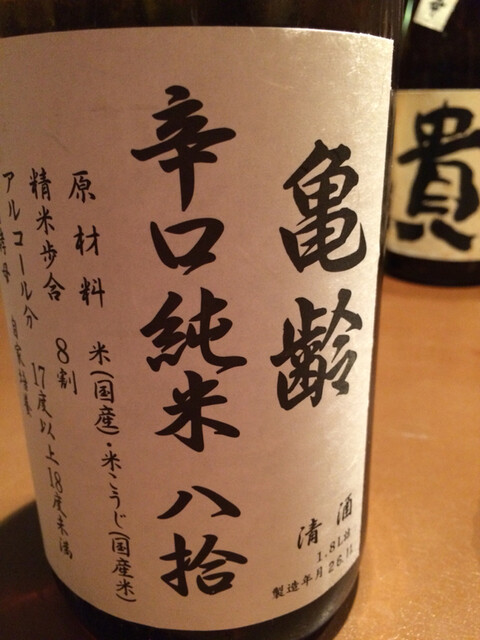 亀齢
清酒
1.8L詰
製造年月 26.11
辛口純米 八拾
原材料 米(国産)・米こうじ(国産米)
精米歩合 8割
アルコール分 17度以上18度未満
貴